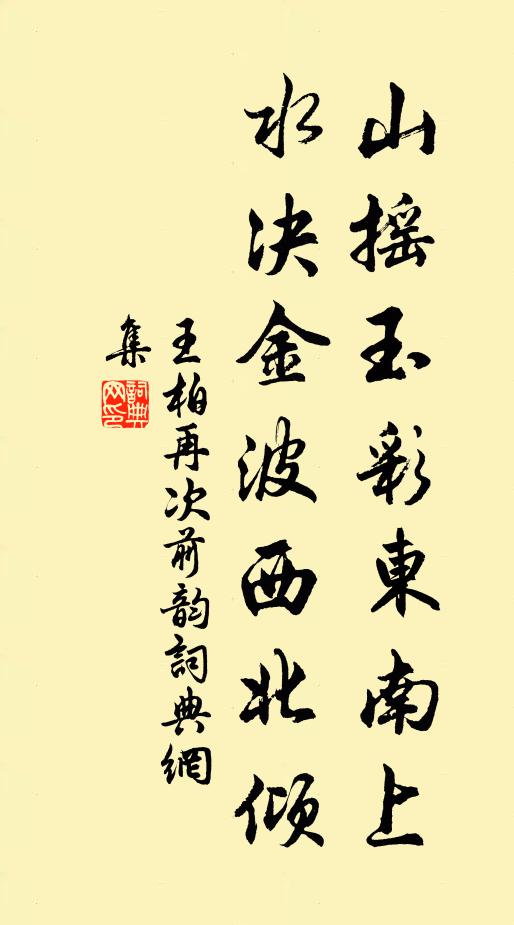 山摇玉彩東南上
水决金波西北傾
王柏再次前韵詞典網
集
詞典網印